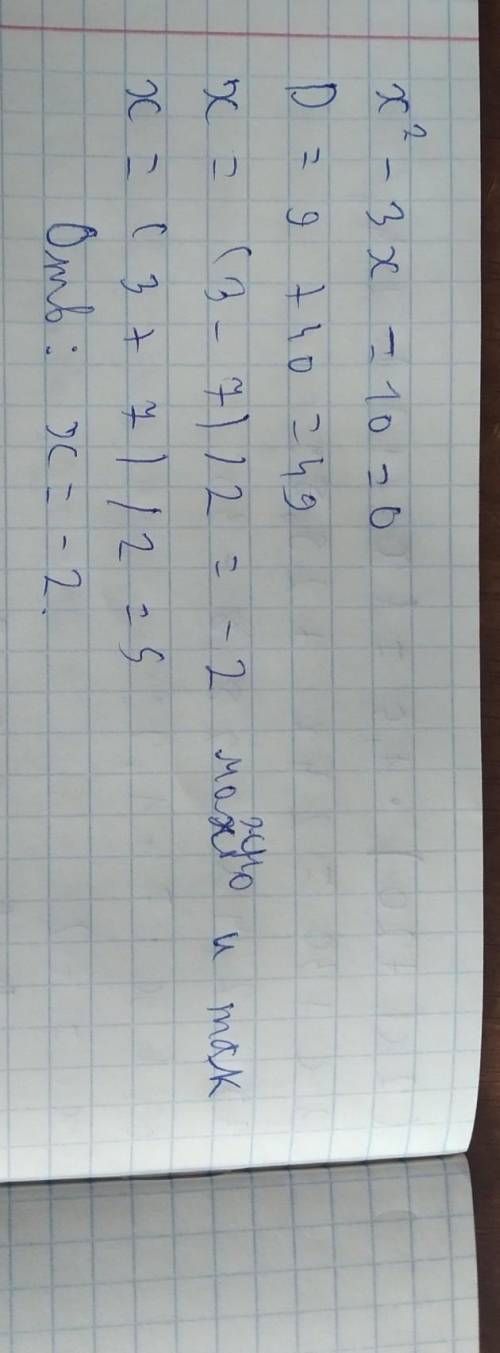 x² - 3x = 10 = 0
D = 9 + 40 = 49
x = (3 - 7) / 2 = -2 можно и так
x = (3 + 7) / 2 = 5
Отв: x = -2.